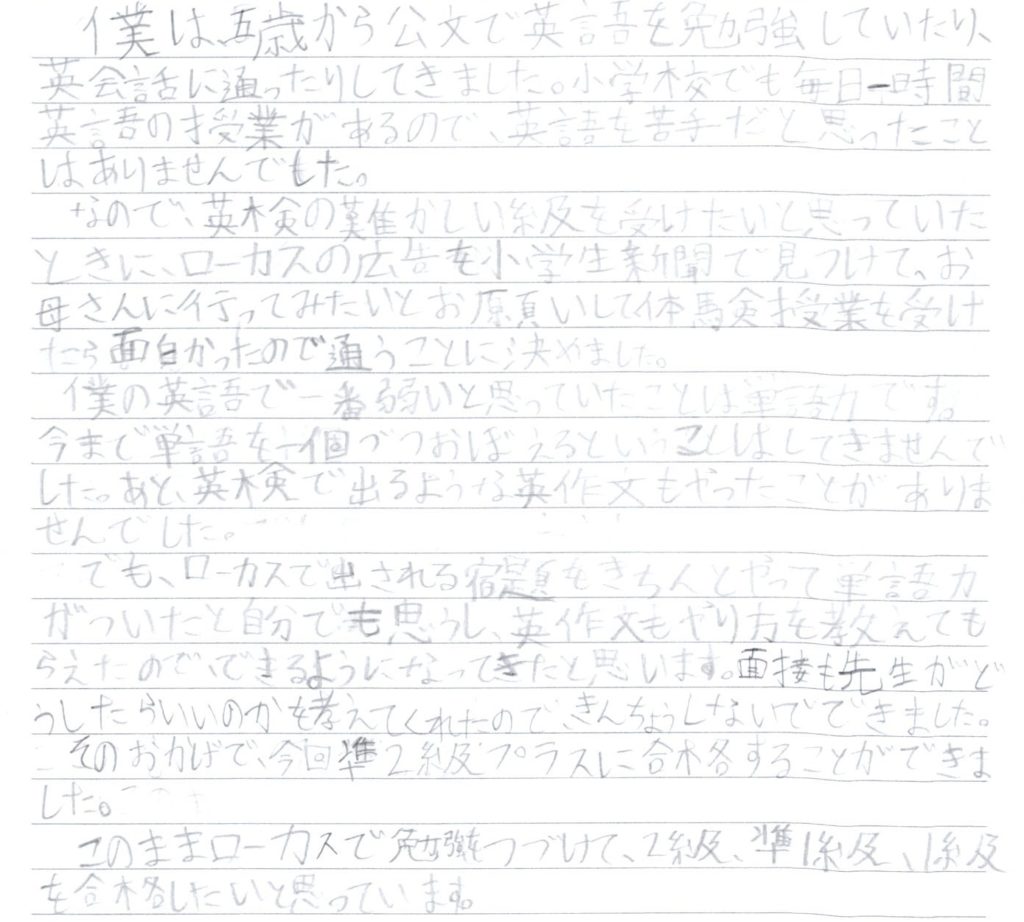 僕は、五歳から公文で英語を勉強していたり、
英会話に通ったりしてきました。小学校でも毎日一時間
英語の授業があるので、英語を苦手だと思ったこと
はありませんでした。
なので、英検の難かしい級を受けたいと思っていた
ときに、ローカスの広告を小学生新聞で見つけて、お
母さんに行ってみたいとお願いして体験授業を受け
たら面白かったので通うことに決めました。
僕の英語で一番弱いと思っていたことは単語力です。
今まで単語を一個づつおぼえるということはしてきませんで
した。あと、英検で出るような英作文もやったことがありま
せんでした。
でも、ローカスで出される宿題をきちんとやって単語力
がついたと自分でも思うし、英作文もやり方を教えても
らえたので、できるようになってきたと思います。面接も先生がど
うしたらいいのかを教えてくれたので、きんちょうしないでできました。
そのおかげで、今回準2級プラスに合格することができま
した。
このままローカスで勉強をつづけて、2級、準1級、1級
を合格したいと思っています。